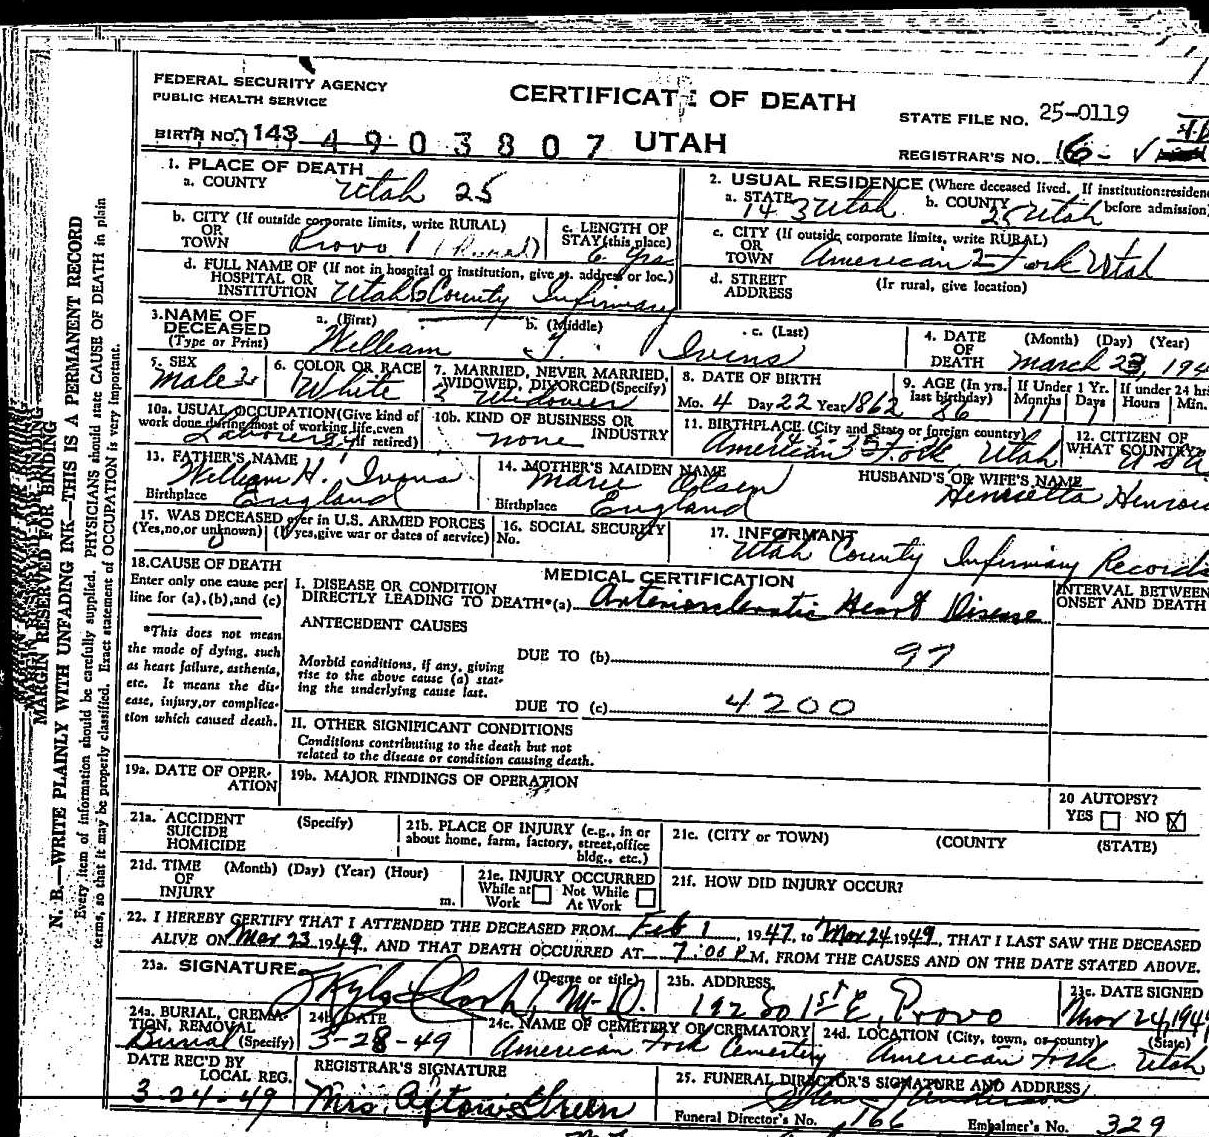 FEDERAL SECURITY AGENCY
PUBLIC HEALTH SERVICE
CERTIFICATE OF DEATH
STATE FILE NO. 25-0119
BIRTH NO. 143 4903807 UTAH
REGISTRAR'S NO. 16-
1. PLACE OF DEATH
a. COUNTY Utah 25
2. USUAL RESIDENCE (Where deceased lived. If institution: residen
before admission)
a. STATE 143 Utah b. COUNTY 25 Utah
b. CITY (If outside corporate limits, write RURAL)
OR
TOWN Provo 1 (Rural)
c. LENGTH OF
STAY (this place)
6 yrs
c. CITY (If outside corporate limits, write RURAL)
OR
TOWN American Fork Utah
d. FULL NAME OF (If not in hospital or institution, give st. address or loc.)
HOSPITAL OR
INSTITUTION Utah County Infirmary
d. STREET
ADDRESS
(If rural, give location)
3. NAME OF
DECEASED
(Type or Print)
a. (First) b. (Middle) c. (Last)
William T. Ivins
4. DATE
OF
DEATH
(Month) (Day) (Year)
March 23, 194
5. SEX
Male
6. COLOR OR RACE
White
7. MARRIED, NEVER MARRIED,
WIDOWED, DIVORCED (Specify)
Widower
8. DATE OF BIRTH
Mo. 4 Day 22 Year 1862
9. AGE (In yrs.
last birthday)
86
If Under 1 Yr.
Months Days
11 1
If under 24 hr
Hours Min.
10a. USUAL OCCUPATION (Give kind of
work done during most of working life, even
if retired)
Laborer
10b. KIND OF BUSINESS OR
INDUSTRY
none
11. BIRTHPLACE (City and State or foreign country)
American Fork, Utah
12. CITIZEN OF
WHAT COUNTRY?
USA
13. FATHER'S NAME
William H. Ivins
Birthplace England
14. MOTHER'S MAIDEN NAME
Marie Olsen
Birthplace England
HUSBAND'S OR WIFE'S NAME
Henrietta
15. WAS DECEASED ever in U.S. ARMED FORCES
(Yes, no, or unknown) (If yes, give war or dates of service)
16. SOCIAL SECURITY
No.
17. INFORMANT
Utah County Infirmary Records
18. CAUSE OF DEATH
Enter only one cause per
line for (a), (b), and (c)
*This does not mean
the mode of dying, such
as heart failure, asthenia,
etc. It means the dis-
ease, injury, or complica-
tion which caused death.
MEDICAL CERTIFICATION
INTERVAL BETWEEN
ONSET AND DEATH
I. DISEASE OR CONDITION
DIRECTLY LEADING TO DEATH*(a) Arteriosclerotic Heart Disease
ANTECEDENT CAUSES
Morbid conditions, if any, giving
rise to the above cause (a) stat-
ing the underlying cause last.
DUE TO (b) 97
DUE TO (c) 4200
II. OTHER SIGNIFICANT CONDITIONS
Conditions contributing to the death but not
related to the disease or condition causing death.
19a. DATE OF OPER-
ATION
19b. MAJOR FINDINGS OF OPERATION
20 AUTOPSY?
YES NO X
21a. ACCIDENT
SUICIDE
HOMICIDE
(Specify)
21b. PLACE OF INJURY (e.g., in or
about home, farm, factory, street, office
bldg., etc.)
21c. (CITY or TOWN) (COUNTY) (STATE)
21d. TIME
OF
INJURY
(Month) (Day) (Year) (Hour)
m.
21e. INJURY OCCURRED
While at Work Not While At Work
21f. HOW DID INJURY OCCUR?
22. I HEREBY CERTIFY THAT I ATTENDED THE DECEASED FROM Feb 1, 1947, to Mar 24 1949, THAT I LAST SAW THE DECEASED
ALIVE ON Mar 23 1949, AND THAT DEATH OCCURRED AT 7:00 P M, FROM THE CAUSES AND ON THE DATE STATED ABOVE.
23a. SIGNATURE (Degree or title)
Clark, M.D.
23b. ADDRESS
192 So 1st E, Provo
23c. DATE SIGNED
Mar 24, 1949
24a. BURIAL, CREMA-
TION, REMOVAL
(Specify)
Burial
24b. DATE
3-28-49
24c. NAME OF CEMETERY OR CREMATORY
American Fork Cemetery
24d. LOCATION (City, town, or county) (State)
American Fork Utah
DATE REC'D BY
LOCAL REG.
3-24-49
REGISTRAR'S SIGNATURE
Mrs. Afton Green
25. FUNERAL DIRECTOR'S SIGNATURE AND ADDRESS
Anderson
Funeral Director's No. 166 Embalmer's No. 329
MARGIN RESERVED FOR BINDING
N. B.—WRITE PLAINLY WITH UNFADING INK—THIS IS A PERMANENT RECORD
Every item of information should be carefully supplied. PHYSICIANS should state CAUSE OF DEATH in plain
terms, so that it may be properly classified. Exact statement of OCCUPATION is very important.